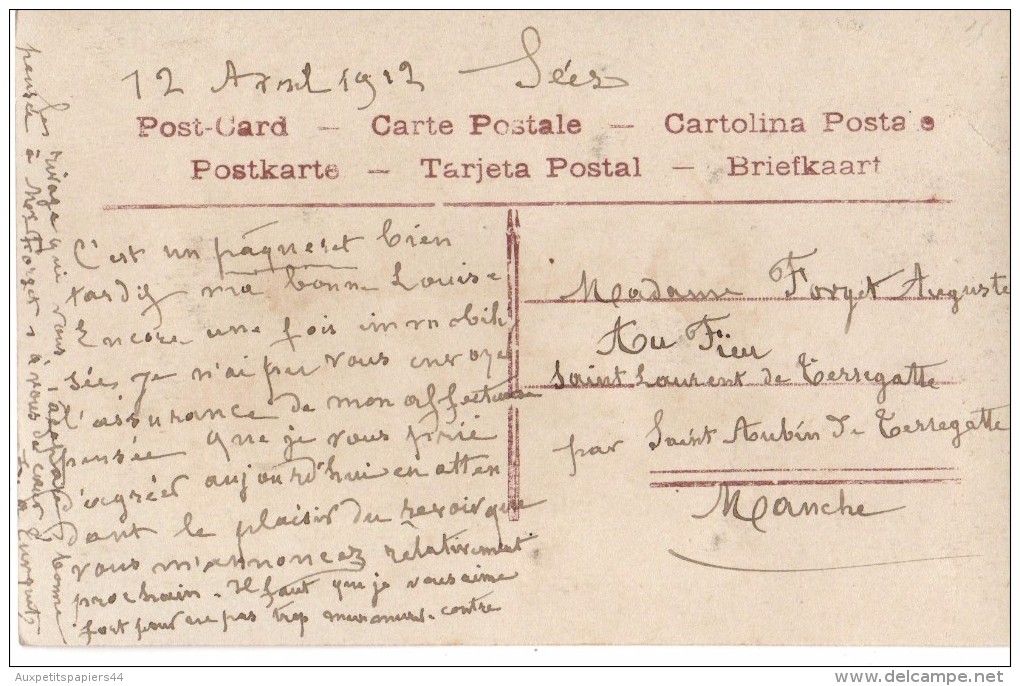 12 Avril 1912 Sées
Post-Card — Carte Postale — Cartolina Postale
Postkarte — Tarjeta Postal — Briefkaart
C'est un pâqueret bien
tardif ma bonne Louise
Encore une fois immobili
sée, je n'ai pu vous envoyer
l'assurance de mon affectueuse
pensée que je vous prie
d'agréer aujourd'hui en atten
dant le plaisir du revoir que
vous m'annoncez relativement
prochain. Il faut que je vous aime
fort pour ne pas trop murmurer contre
les rivages qui vous
bonne
pensée à Mer Forget & à vous de cœur
Madame Forget Auguste
Au Fïeu
Saint Laurent de Terregatte
par Saint Aubin de Terregatte
Manche
Auxpetitspapiers44
delcampe.net